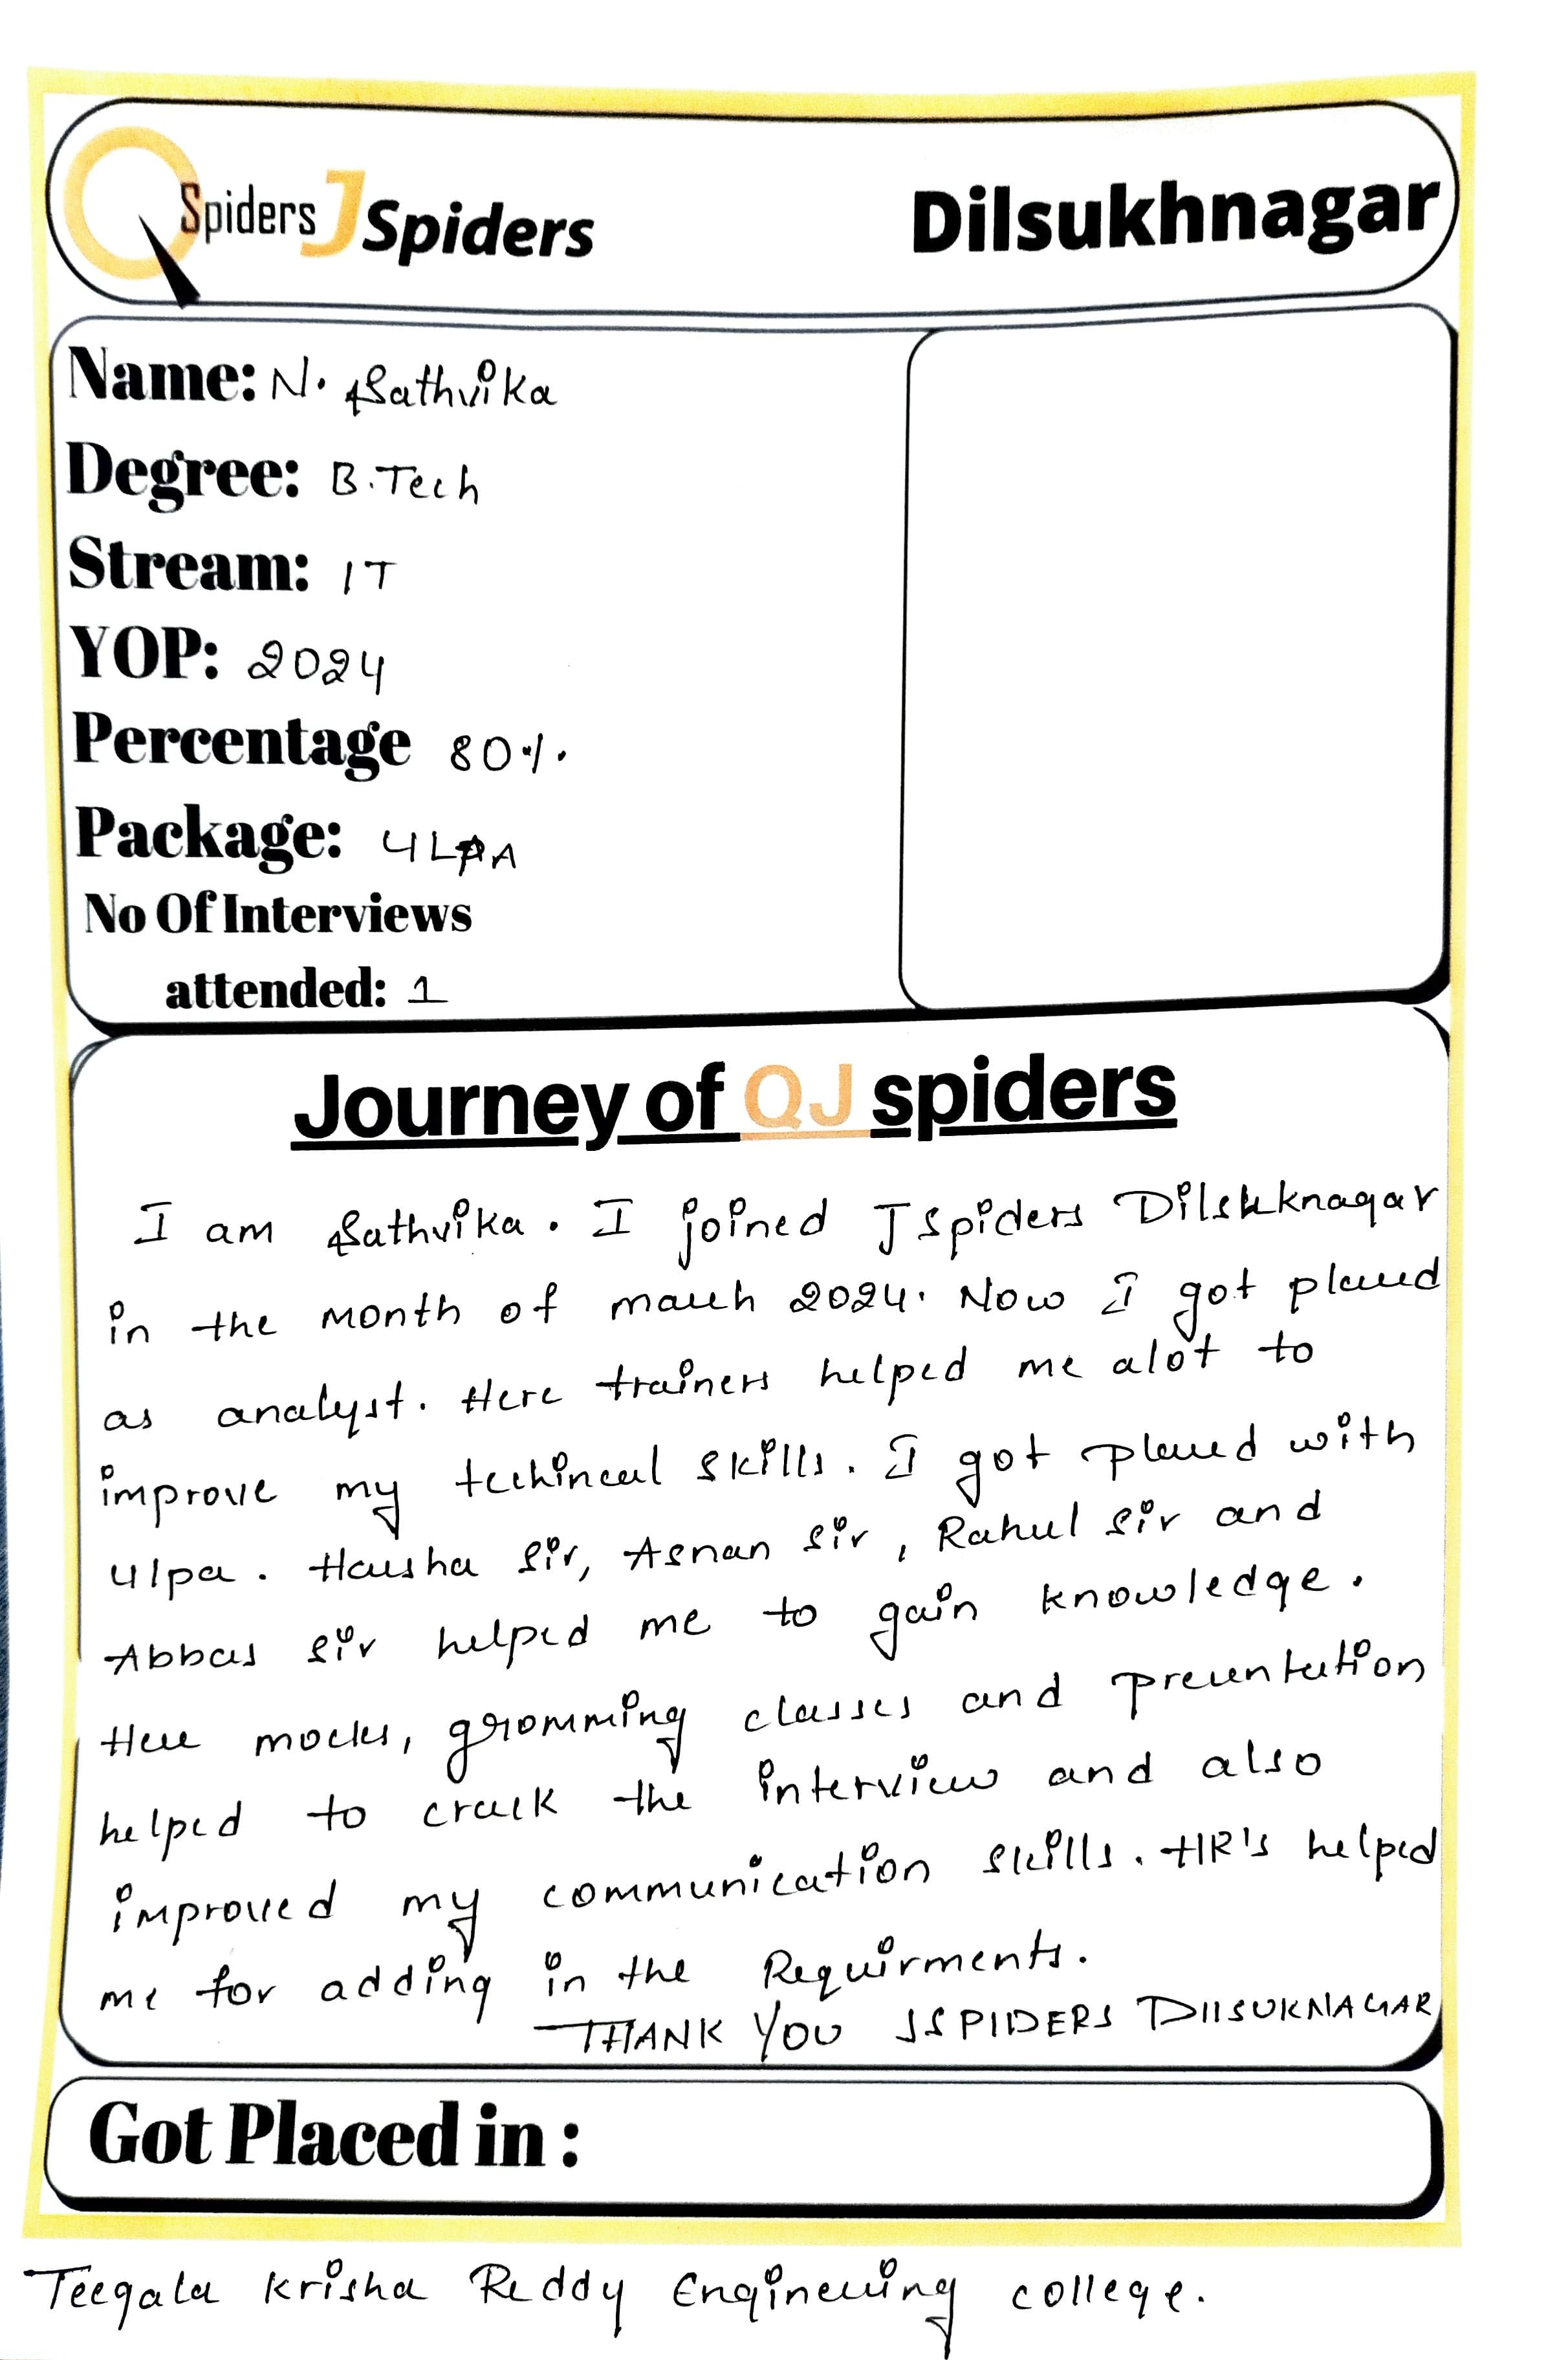 QSpiders JSpiders Dilsukhnagar
Name: N. Sathvika
Degree: B.Tech
Stream: IT
YOP: 2024
Percentage 80%.
Package: 4LPA
No Of Interviews
attended: 1
Journey of QJ spiders
I am Sathvika. I joined JSpiders Dilshknagar
in the month of march 2024. Now I got placed
as analyst. Here trainers helped me alot to
improve my techincal skills. I got placed with
4lpa. Harsha sir, Asnan sir, Rahul sir and
Abbas sir helped me to gain knowledge.
Here mocks, gromming classes and presentation
helped to crack the interview and also
improved my communication skills. HR's helped
me for adding in the Requirments.
THANK YOU JSPIDERS DILSUKNAGAR
Got Placed in :
Teegala Krisha Reddy Engineering college.